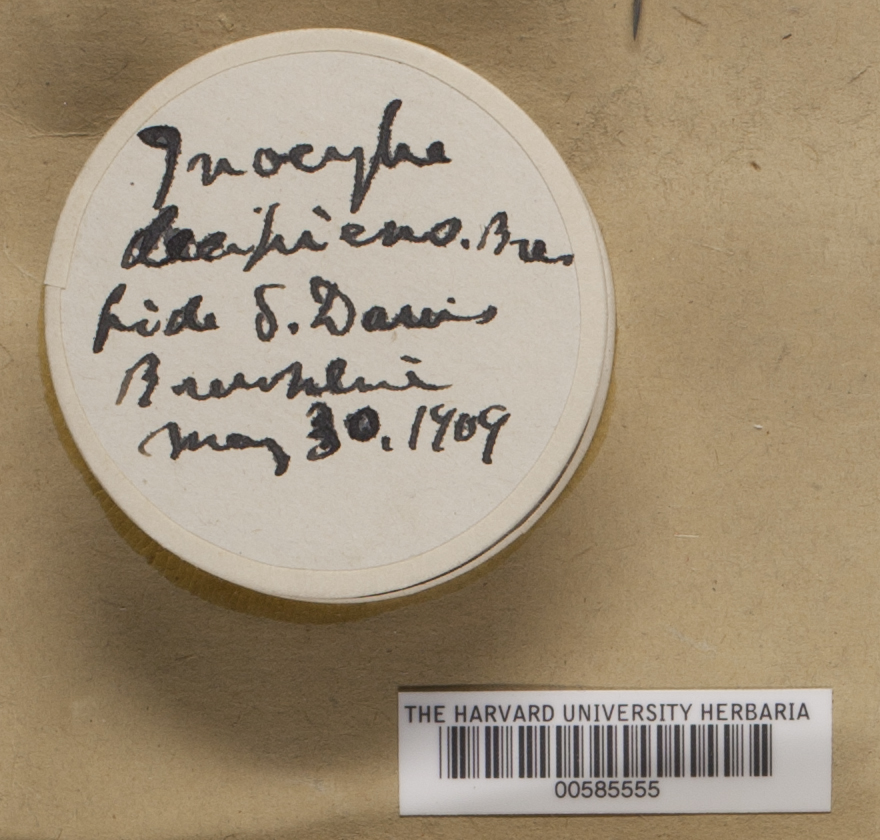 Inocybe
decipiens. Bres
fide S. Davis
Brookline
May 30. 1909
THE HARVARD UNIVERSITY HERBARIA
00585555